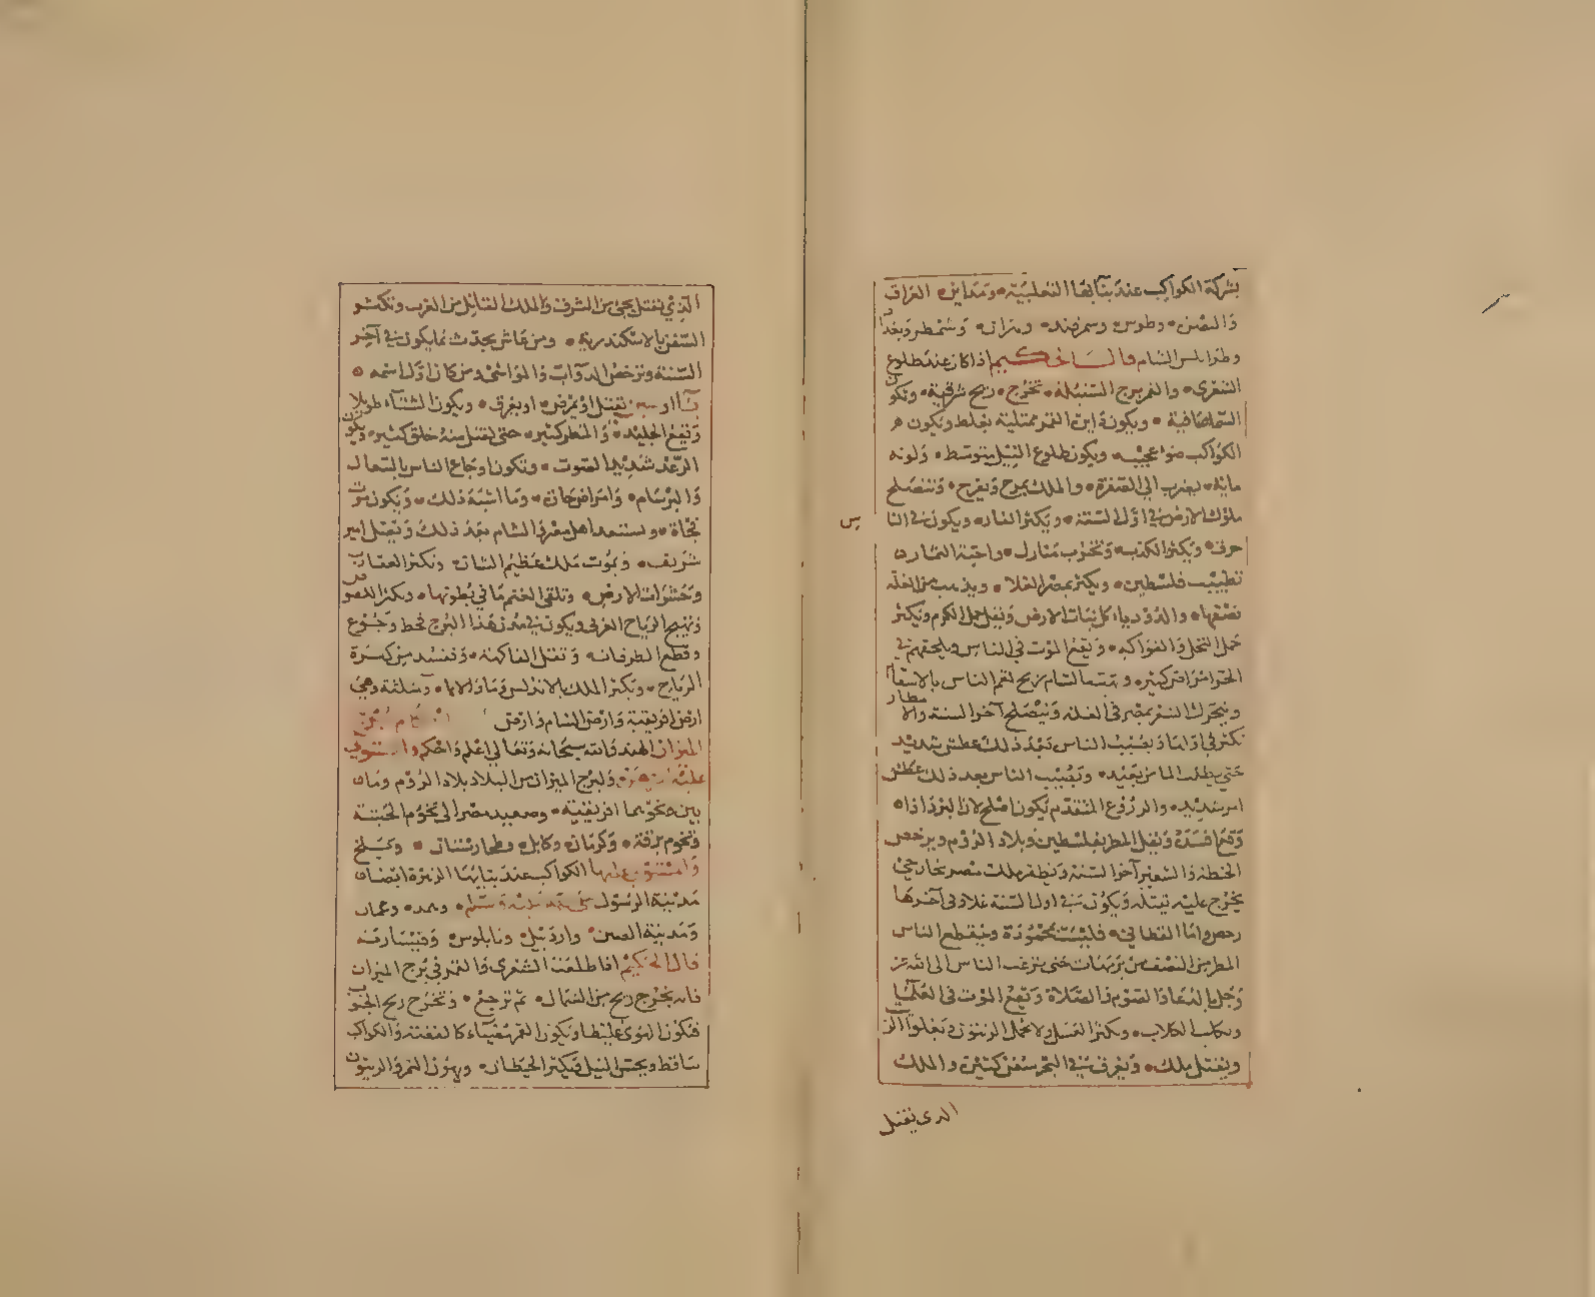 بشركة الكواكب عند بنائها الثعلبية ومداين العراق
والصين وطوس وسمرقند وهراة
وطرابلس الشام قال الحكيم اذا كان عند طلوع
الشعرى والقمر ببرج السنبلة تخرج ريح شرقية وتكون
السما صافية ويكون القمر ممتلية بغلظ ويكون
الكواكب ضوا عجيبه ويكون طلوع النيل متوسط ولونه
يضرب الى الصفرة والملك يمرح ويفرح وتنصلح
ملوك الارض في اول السنة ويكثر الفار ويكون في الناس
حرف ويكثر الكذب وتخرب منازل
فلسطين ويكثر بمصر الغلا ويذهب من الغلة
نصفها والدود ياكل نبات الارض ويقل حمل الكروم ويكثر
حمل النخل والفواكه ويقع الموت في الناس ويلحقهم في
امراض كثيره الشام ريح لقم الناس بالاسقام
ويتحرك السعر بمصر في الغلة وينصلح آخر السنة والامطار
تكثر في اوانها ويصيب الناس بعد ذلك عطش شديد
حتى يطلب الما من بعيد ويصيب الناس بعد ذلك عطش
امر شديد والزروع المتقدم يكون اصلح لان البرد اذا
وقع افسده ويقل المطر بفلسطين وبلاد الروم ويرخص
الحنطة والشعير آخر السنة ويظفر ملك مصر بخارجي
يخرج عليه يقتله ويكون في اول السنة غلاء وفي آخرها
رخص واما القطاني فليست محمودة وينقطع الناس
المطر من النصف من برمهات حتى يرغب الناس الى الله عز
وجل بالدعاء والصوم والصلاة ويقع الموت في العلماء
وتكلب الكلاب ويكثر العسل ولا يحمل الزيتون
ويقتل ملك ويغرق في البحر سفن كثيرة والملك
الذى يقتل
الذي يقتل يجئ من الشرق والملك القاتل من الغرب وتكثر
السفن بالاسكندرية ومن عاش يحدث بما يكون في آخر
السنة وترخص الدواب والمواشي ومن كان اول اسمه
يقتل او يمرض او يغرق ويكون الشتاء طويلا
ويقع الجليد والمطر كثير حتى يقتل منه خلق كثير ويكون
الرعد شديد الصوت وتكون اوجاع الناس بالسعال
والبرسام وامراض حادة وما اشبه ذلك ويكون موت
فجأة اهل مصر والشام بعد ذلك ويقتل امير
شريف ويموت ملك عظيم الشان وتكثر العقارب
وحشرات الارض وتلقى الغنم ما في بطونها ويكثر اللصوص
وتهيج الرياح الغربي ويكون في مدن هذا البرج قحط وجوع
وقطع الطرقات وتقل الفاكهة وتفسد من كثرة
الرياح ويكثر الملك بالاندلس
ارض افريقية وارض الشام وارض
الميزان الهند والله سبحانه وتعالى اعلم واحكم والمستولي
عليه الزهرة ولبرج الميزان من البلاد بلاد الروم وما
بين تخومها افريقية وصعيد مصر الى تخوم الحبشة
وتخوم برقة وكرمان وكابل وطخارستان وبلخ
والمستولي عليها الكواكب عند بنايها الزهرة ايضا
مدينة الرسول صلى الله عليه وسلم وعمان
ومدينة الصين واردبيل ونابلوس وقيسارية
قال الحكيم اذا طلعت الشعرى والقمر في برج الميزان
فانه يخرج ريح من الشمال ثم ترجع وتخرج ريح الجنوب
فتكون الهوى غليظا ويكون القمر مضيئا كالفضة والكواكب
ساقط ويحسن النيل فيكثر الحيطان ويهون التمر والزيتون